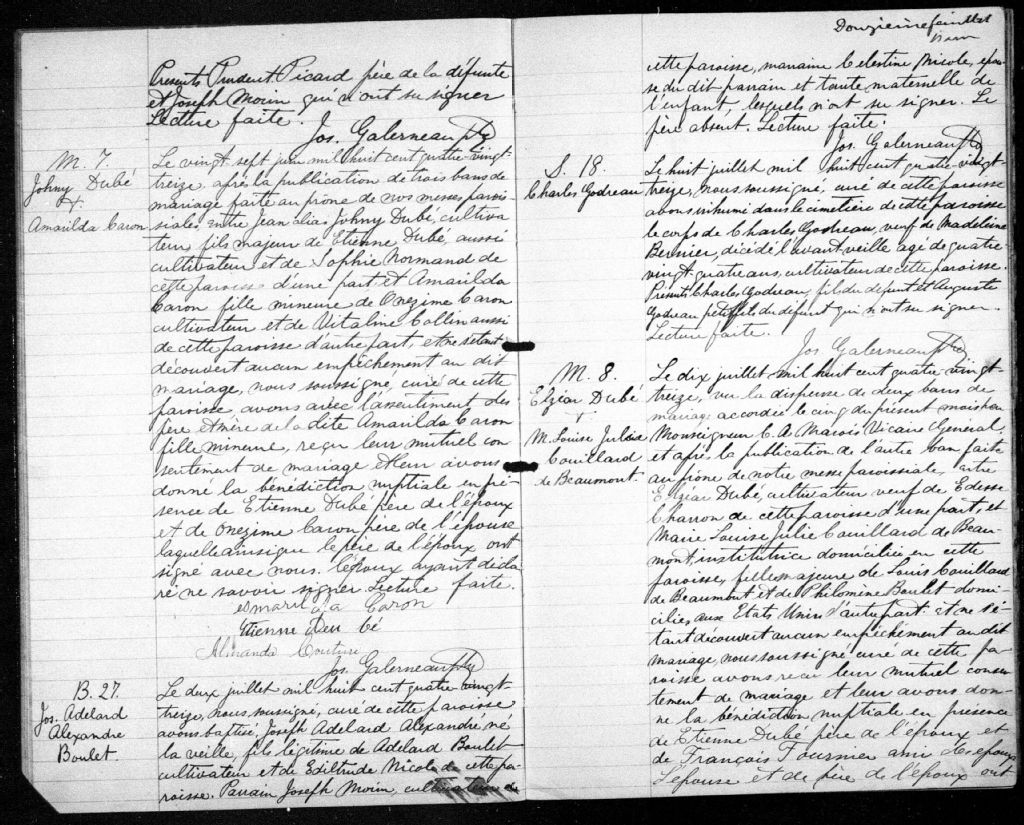 Presents Prudent Picard père de la défunte
et Joseph Morin qui n'ont su signer
Lecture faite.
Jos. Galerneau Ptre
M. 7.
Johny Dubé
&
Amarilda Caron
Le vingt sept juin mil huit cent quatre-vingt-
treize, après la publication de trois bans de
mariage faite au prône de nos messes parois-
siales, entre Jean alias Johny Dubé, cultiva-
teur fils majeur de Etienne Dubé, aussi
cultivateur et de Sophie Normand de
cette paroisse d'une part, et Amarilda
Caron fille mineure de Onézime Caron
cultivateur et de Vitaline Collin aussi
de cette paroisse d'autre part, et ne s'étant
découvert aucun empêchement au dit
mariage, nous soussigné, curé de cette
paroisse, avons avec l'assentiment des
père et mère de la dite Amarilda Caron
fille mineure, reçu leur mutuel con
sentement de mariage et leur avons
donné la bénédiction nuptiale en pré-
sence de Etienne Dubé père de l'époux
et de Onezime Caron père de l'épouse
laquelle ainsi que le père de l'époux ont
signé avec nous. l'époux ayant décla
ré ne savoir signer. Lecture faite.
Caron
Etienne Deu bé
Couture
Jos. Galerneau Ptre
B. 27.
Jos. Adelard
Alexandre
Boulet.
Le deux juillet mil huit cent quatre-vingt-
treize, nous soussigné, curé de cette paroisse
avons baptisé, Joseph Adelard Alexandre né
la veille, fils légitime de Adelard Boulet
cultivateur et de Ediltrude Nicole de cette pa-
roisse. Parrain Joseph Morin, cultivateur de
Douzième feuillet
cette paroisse, marraine Celestine Nicole, épou
se du dit parrain et tante maternelle de
l'enfant, lesquels n'ont su signer. Le
père absent. Lecture faite.
Jos. Galerneau Ptre
S. 18.
Charles Godreau
Le huit juillet mil huit cent quatre-vingt
treize, nous soussigné, curé de cette paroisse
avons inhumé dans le cimetière de cette paroisse
le corps de Charles Godreau, veuf de Madeleine
Bernier, décédé l'avant veille agé de quatre-
vingt quatre ans, cultivateur de cette paroisse.
Présents Charles Godreau, fils du défunt et Auguste
Godreau petit fils du défunt qui n'ont su signer.
Lecture faite.
Jos Galerneau Ptre
M. 8.
Elzéar Dubé
M. Louise Julie
Couillard
de Beaumont.
Le dix juillet mil huit cent quatre vingt
treize, vu la dispense de deux bans de
mariage accordée le cinq du présent mois par
Monseigneur C. A. Marois Vicaire Général,
et après la publication de l'autre ban faite
au prône de notre messe paroissiale, entre
Elzéar Dubé, cultivateur veuf de Edesse
Charron de cette paroisse d'une part, et
Marie Louise Julie Couillard de Beau-
mont, institutrice domiciliée en cette
paroisse, fille majeure de Louis Couillard
de Beaumont et de Philomène Boulet domi-
ciliés aux Etats Unis d'autre part. et ne s'é-
tant découvert aucun empêchement au dit
mariage, nous soussigné curé de cette pa-
roisse avons reçu leur mutuel consen
tement de mariage et leur avons don-
né la bénédiction nuptiale en présence
de Etienne Dubé père de l'époux et
de François Fournier ami des époux
L'épouse et de père de l'époux ont